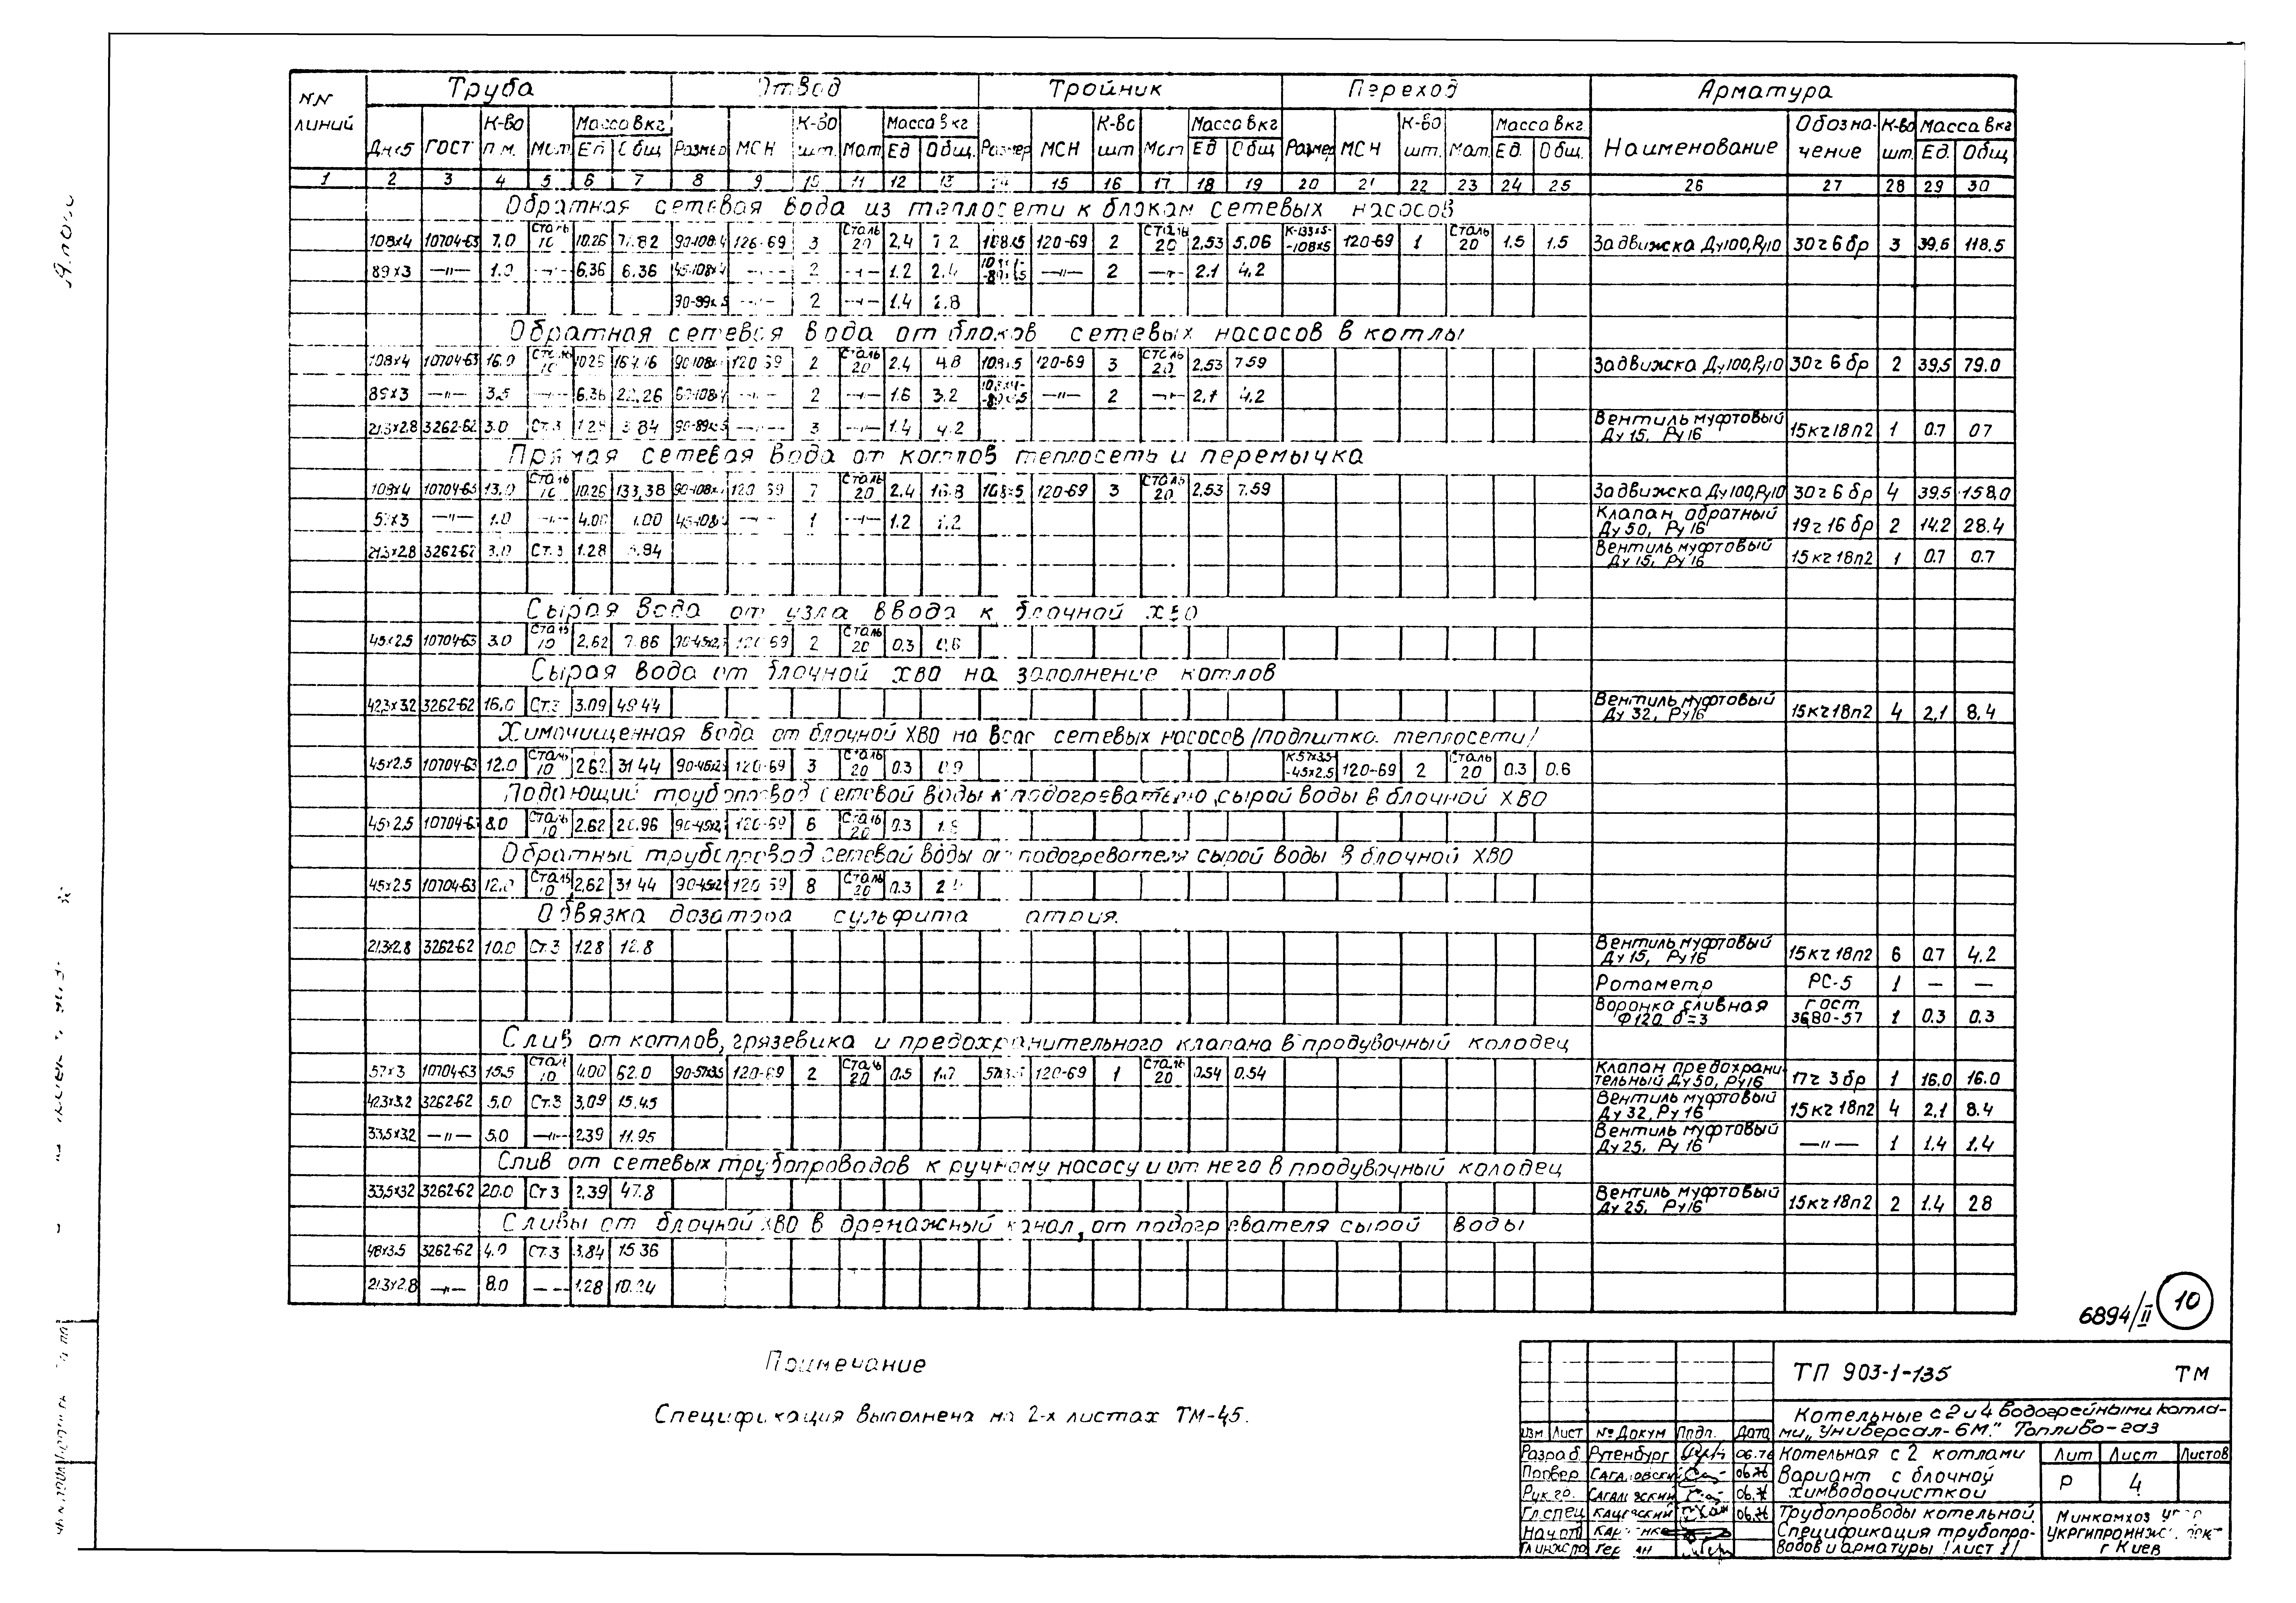 NN линий Труба Отвод Тройник Переход Арматура
К-во Масса в кг К-во Масса в кг К-во Масса в кг К-во Масса в кг Наименование Обозна- К-во Масса в кг
Днхδ ГОСТ п.м. Мат. Ед Общ Размер МСН шт. Мат. Ед Общ. Размер МСН шт Мат Ед Общ Размер МСН шт. Мат. Ед. Общ. чение шт. Ед. Общ
1 2 3 4 5 6 7 8 9 10 11 12 13 14 15 16 17 18 19 20 21 22 23 24 25 26 27 28 29 30
Обратная сетевая вода из теплосети к блокам сетевых насосов
108х4 10704-63 7.0 Сталь 10 10.26 71.82 90-108х4 120-69 3 Сталь 20 2,4 7.2 108х5 120-69 2 Сталь 20 2.53 5.06 К-133х5-108х5 120-69 1 Сталь 20 1.5 1.5 Задвижка Ду100,Ру10 30ч6бр 3 39,5 118.5
89х3 —"— 1.0 —"— 6.36 6.36 45-108х4 —"— 2 —"— 1.2 2.4 —"— 2 —"— 2.1 4.2
—"— 2 —"— 1.4 2.8
Обратная сетевая вода от блоков сетевых насосов в котлы
108х4 10704-63 16.0 Сталь 10 10.26 164.16 120-69 2 Сталь 20 2.4 4.8 108х5 120-69 3 Сталь 20 2.53 7.59 Задвижка Ду100,Ру10 30ч6бр 2 39,5 79.0
89х3 —"— 3.5 —"— 6.36 22,26 60-108х4 —"— 2 —"— 1.6 3.2 —"— 2 —"— 2.1 4.2
21.3х2.8 3262-62 3.0 Ст.3 1.28 3.84 —"— 3 —"— 1.4 4.2 Вентиль муфтовый Ду 15, Ру16 15кч18п2 1 0.7 07
Прямая сетевая вода от котлов теплосеть и перемычка
108х4 10704-63 13.0 Сталь 10 10.26 133,38 120-69 7 Сталь 20 2,4 16.8 108х5 120-69 3 Сталь 20 2,53 7.59 Задвижка Ду100,Ру10 30ч6бр 4 39,5 158,0
57х3 —"— 1.0 —"— 4.00 4.00 45-108х4 —"— 1 —"— 1.2 1.2 Клапан обратный Ду 50, Ру 16 19ч16бр 2 14.2 28.4
21.3х2.8 3262-62 3.0 Ст.3 1.28 3.84 Вентиль муфтовый Ду 15, Ру 16 15кч18п2 1 0.7 0.7
Сырая вода от узла ввода к блочной ХВО
45х2,5 10704-63 3.0 Сталь 10 2,62 7.86 90-45х2,5 120-69 2 Сталь 20 0.3 0.6
Сырая вода от блочной ХВО на заполнение котлов
42.3х3.2 3262-62 16.0 Ст.3 3.09 49.44 Вентиль муфтовый Ду 32, Ру16 15кч18п2 4 2,1 8.4
Химочищенная вода от блочной ХВО на всас сетевых насосов/подпитка теплосети/
45х2.5 10704-63 12.0 Сталь 10 2.62 31.44 90-45х2.5 120-69 3 Сталь 20 0.3 0.9 К57х3,5-45х2.5 120-69 2 Сталь 20 0.3 0.6
Подающий трубопровод сетевой воды к подогревателю сырой воды в блочной ХВО
45х2,5 10704-63 8.0 Сталь 10 2.62 20.96 90-45х2,5 120-69 6 Сталь 20 0.3 1.8
Обратный трубопровод сетевой воды от подогревателя сырой воды в блочной ХВО
45х2.5 10704-63 12.0 Сталь 10 2,62 31.44 90-45х2.5 120-69 8 Сталь 20 0.3 2.4
Обвязка дозатора сульфита атрия.
21.3х2.8 3262-62 10.0 Ст.3 1.28 12.8 Вентиль муфтовый Ду 15, Ру 16 15кч18п2 6 0.7 4.2
Ротаметр РС-5 1 — —
Воронка сливная Ф120 δ=3 гост 3680-57 1 0.3 0.3
Слив от котлов, грязевика и предохранительного клапана в продувочный колодец
57х3 10704-63 15.5 Сталь 10 4.00 62.0 90-57х3.5 120-69 2 Сталь 20 0.5 1.0 57х3.5 120-69 1 Сталь 20 0.54 0.54 Клапан предохранительный Ду 50, Ру16 17ч3бр 1 16.0 16.0
42.3х3.2 3262-62 5.0 Ст.3 3,09 15.45 Вентиль муфтовый Ду 32, Ру 16 15кч18п2 4 2,1 8.4
33,5х3.2 —"— 5.0 —"— 2.39 11.95 Вентиль муфтовый Ду 25, Ру 16 —"— 1 1.4 1.4
Слив от сетевых трубопроводов к ручному насосу и от него в продувочный колодец
33,5х3.2 3262-62 20.0 Ст 3 2,39 47.8 Вентиль муфтовый Ду 25, Ру16 15кч18п2 2 1.4 2.8
Сливы от блочной ХВО в дренажный канал, от подогревателя сырой воды
48х3.5 3262-62 4.0 Ст.3 3,84 15.36
21.3х2.8 —"— 8.0 —"— 1.28 10.24
6894/II 10
Примечание
Спецификация выполнена на 2-х листах ТМ-4,5.
ТП 903-1-135 ТМ
Котельные с 2 и 4 водогрейными котла-
ми „Универсал-6М." Топливо-газ
Изм Лист № Докум Подп. Дата
Разраб. Рутенбург 06.76 Котельная с 2 котлами Лит Лист Листов
Провер Сагаловский 06.76 Вариант с блочной Р 4
Рук.гр. Сагаловский 06.76 химводоочисткой
Гл.спец 06.76 Трубопроводы котельной. Минкомхоз
Нач.отд Спецификация трубопро-
Гл.инж.пр. водов и арматуры /лист 1/ г Киев